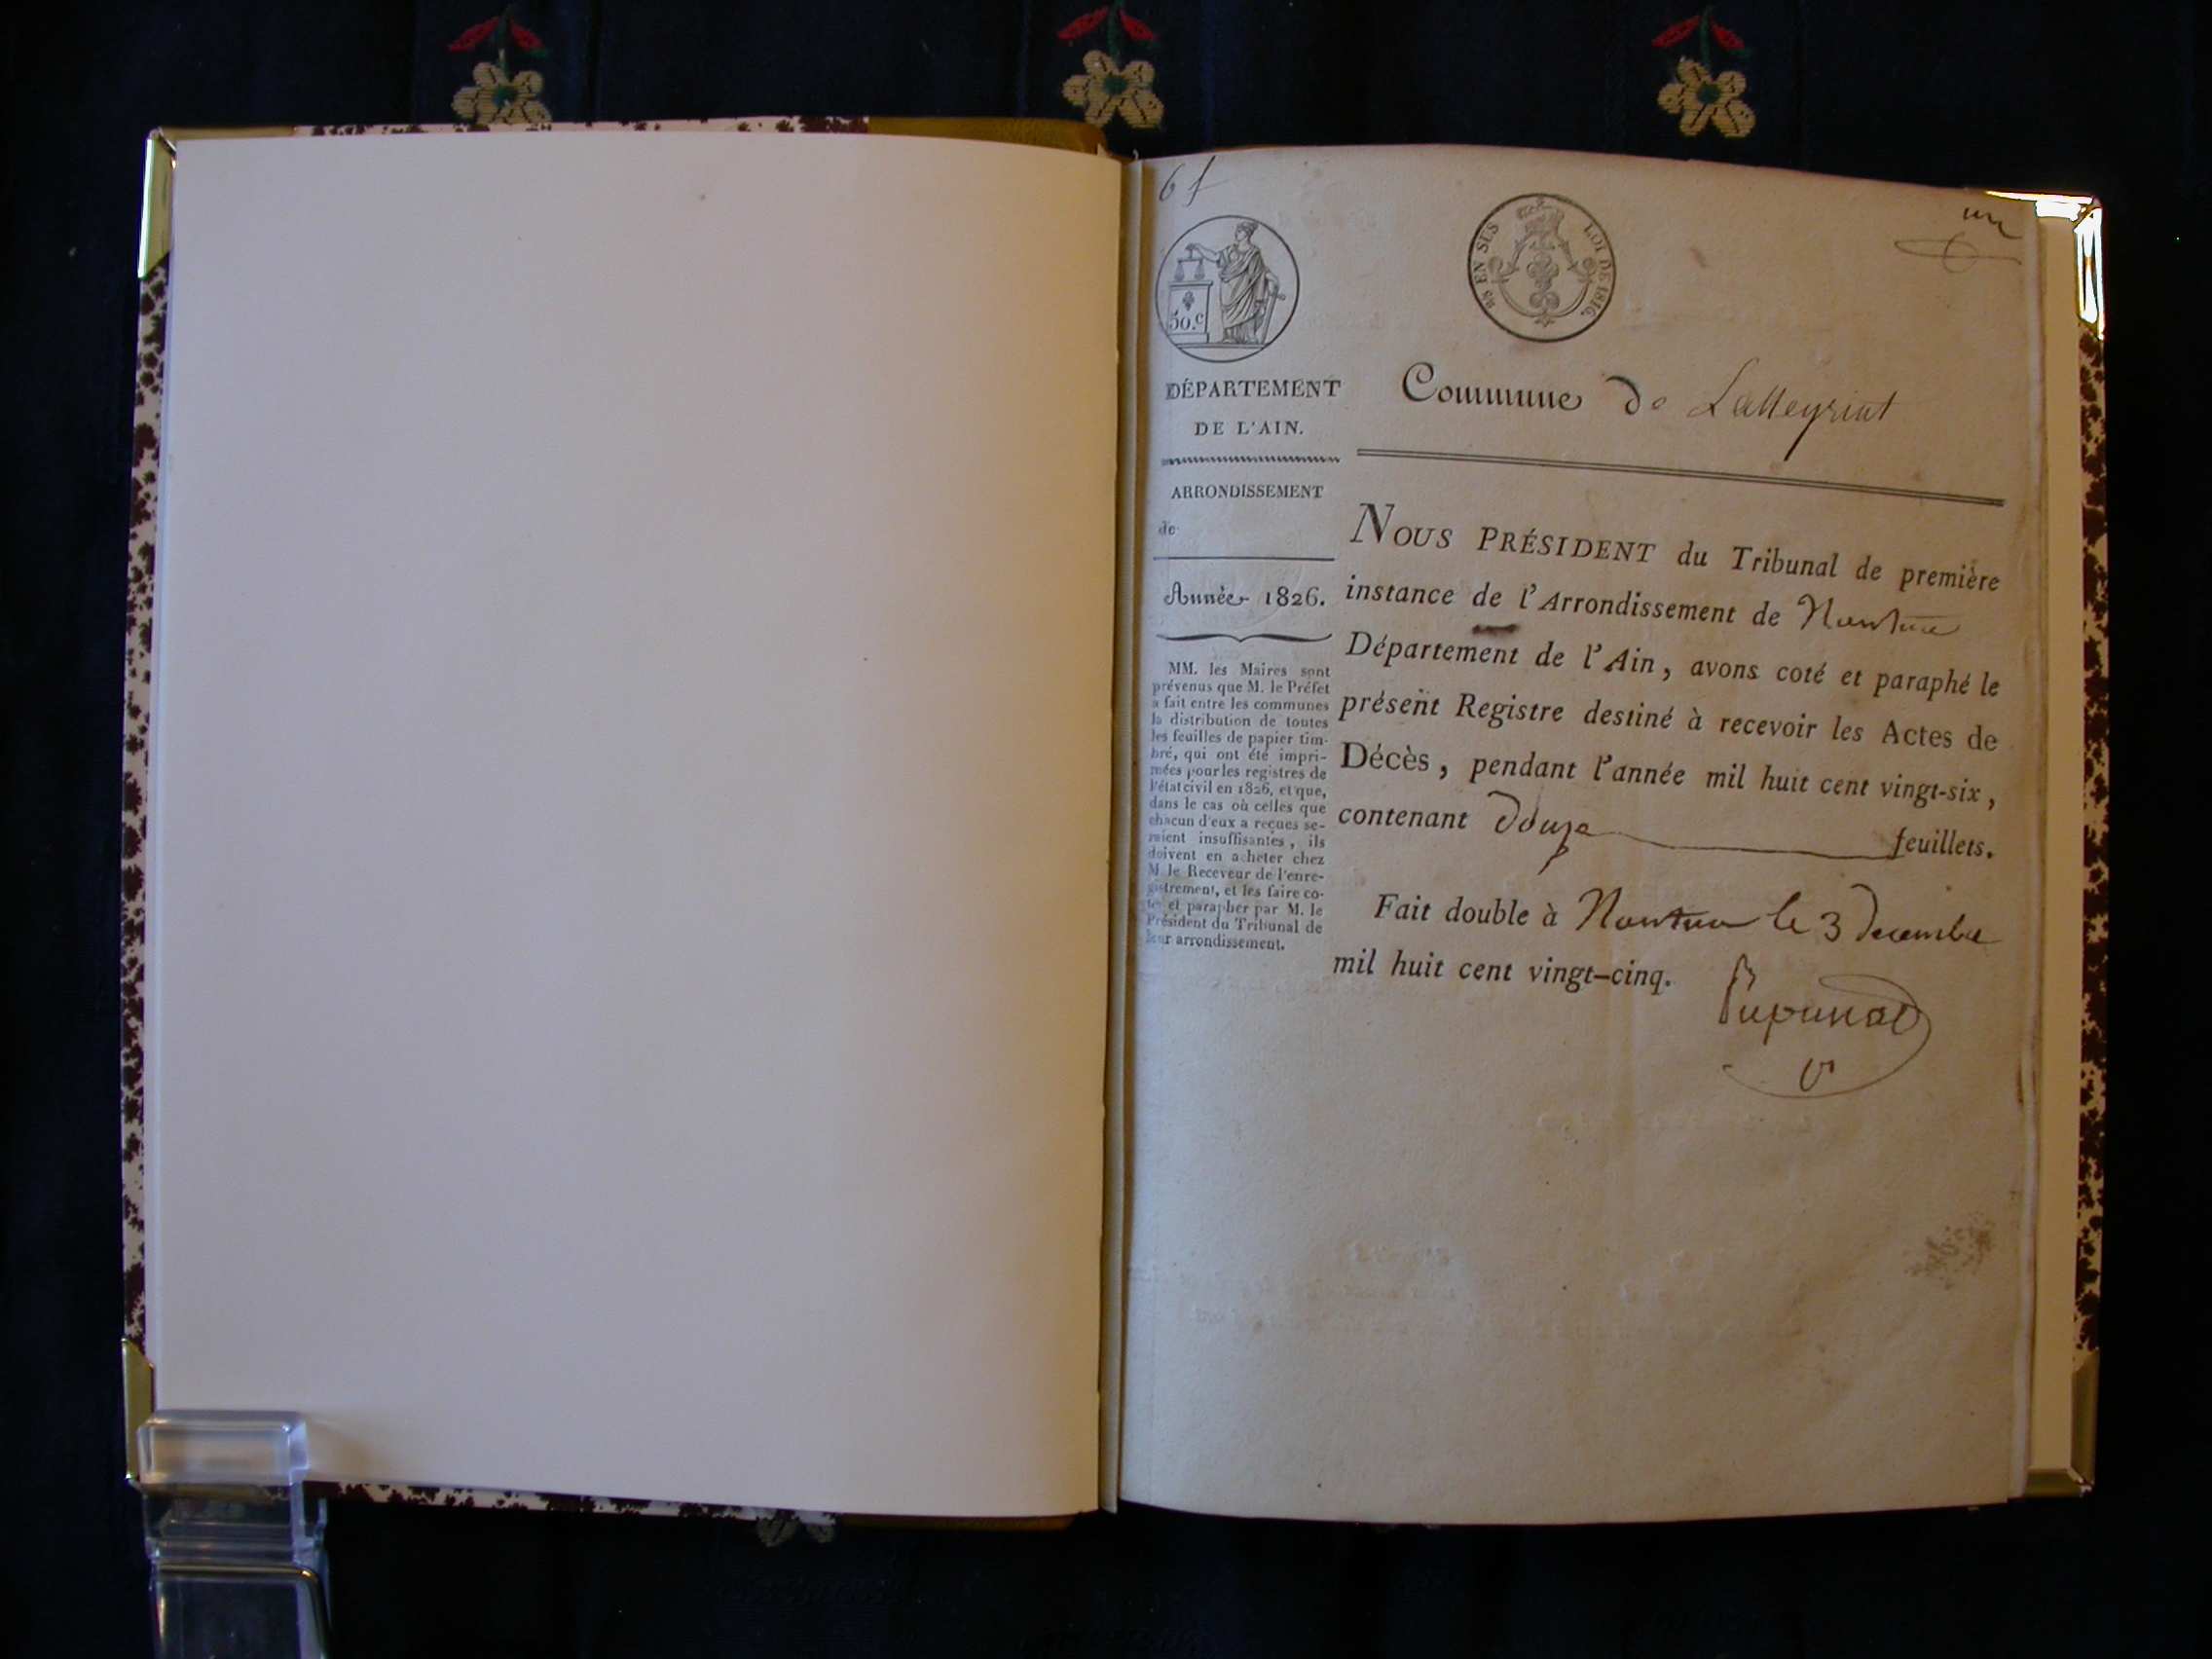 6 f
un
50.c
EN SUS LOI DE 1816.
DÉPARTEMENT
DE L'AIN.
ARRONDISSEMENT
de
Année 1826.
MM. les Maires sont
prévenus que M. le Préfet
a fait entre les communes
la distribution de toutes
les feuilles de papier tim-
bré, qui ont été impri-
mées pour les registres de
l'état civil en 1826, et que,
dans le cas où celles que
chacun d'eux a reçues se-
roient insuffisantes, ils
doivent en acheter chez
M. le Receveur de l'enre-
gistrement, et les faire co-
ter et parapher par M. le
Président du Tribunal de
leur arrondissement.
Commune de Lalleyriat
NOUS PRÉSIDENT du Tribunal de première
instance de l'Arrondissement de Nantua
Département de l'Ain, avons coté et paraphé le
présent Registre destiné à recevoir les Actes de
Décès, pendant l'année mil huit cent vingt-six,
contenant douze feuillets.
Fait double à Nantua le 3 decembre
mil huit cent vingt-cinq.